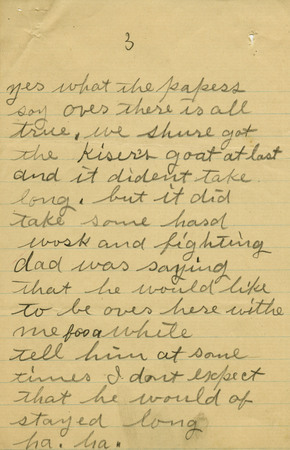 3
yes what the papers
say over there is all
true. we shure got
the Kiser's goat at last
and it dident take
long. but it did
take some hard
work and fighting
dad was saying
that he would like
to be over here withe
me for a while
tell him at some
times I dont expect
that he would of
stayed long
ha. ha.